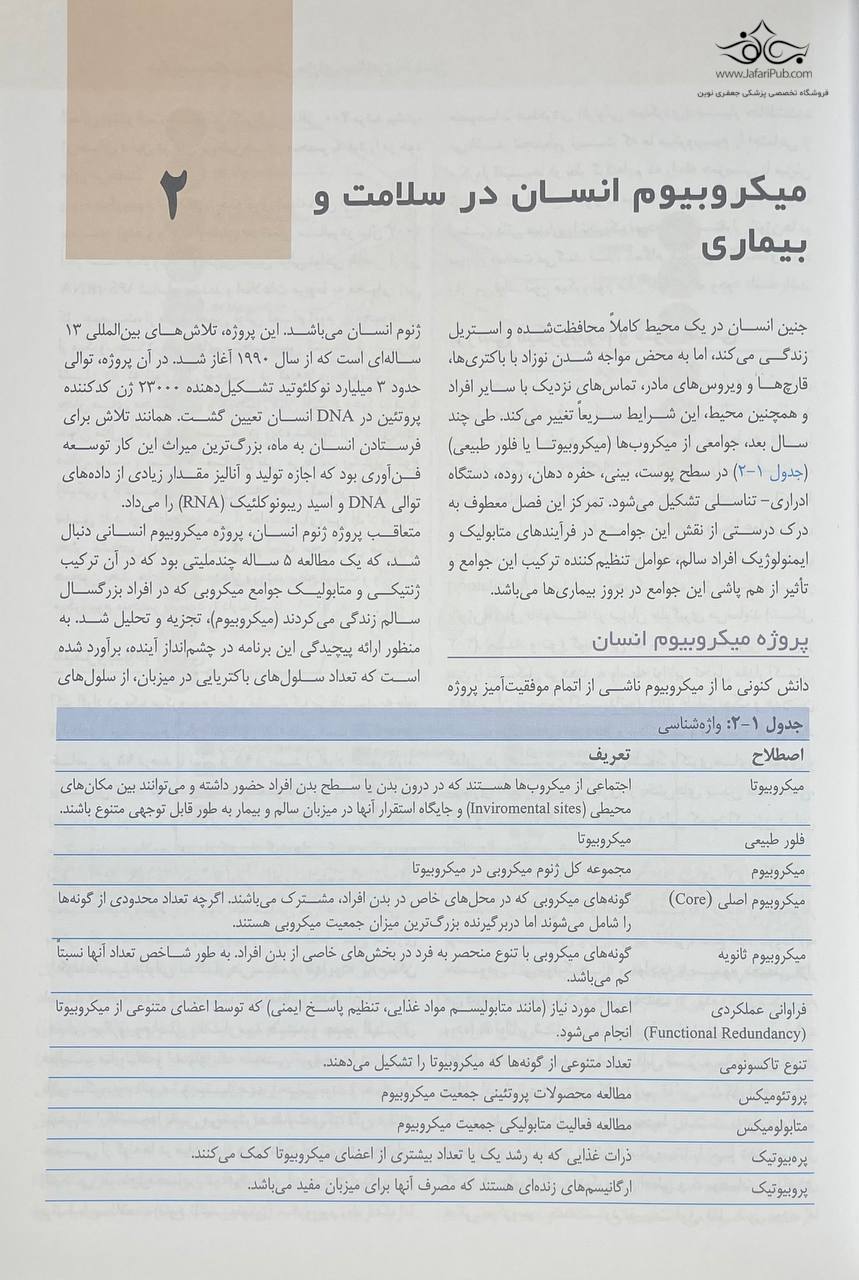 www.JafariPub.com
فروشگاه تخصصی پزشکی جعفری نوین
۲
میکروبیوم انسان در سلامت و
بیماری
جنین انسان در یک محیط کاملاً محافظت‌شده و استریل
زندگی می‌کند، اما به محض مواجه شدن نوزاد با باکتری‌ها،
قارچ‌ها و ویروس‌های مادر، تماس‌های نزدیک با سایر افراد
و همچنین محیط، این شرایط سریعاً تغییر می‌کند. طی چند
سال بعد، جوامعی از میکروب‌ها (میکروبیوتا یا فلور طبیعی)
(جدول ۱-۲) در سطح پوست، بینی، حفره دهان، روده، دستگاه
ادراری- تناسلی تشکیل می‌شود. تمرکز این فصل معطوف به
درک درستی از نقش این جوامع در فرآیندهای متابولیک و
ایمنولوژیک افراد سالم، عوامل تنظیم‌کننده ترکیب این جوامع و
تأثیر از هم پاشی این جوامع در بروز بیماری‌ها می‌باشد.
پروژه میکروبیوم انسان
دانش کنونی ما از میکروبیوم ناشی از اتمام موفقیت‌آمیز پروژه
ژنوم انسان می‌باشد. این پروژه، تلاش‌های بین‌المللی ۱۳
ساله‌ای است که از سال ۱۹۹۰ آغاز شد. در آن پروژه، توالی
حدود ۳ میلیارد نوکلئوتید تشکیل‌دهنده ۲۳۰۰۰ ژن کدکننده
پروتئین در DNA انسان تعیین گشت. همانند تلاش برای
فرستادن انسان به ماه، بزرگ‌ترین میراث این کار توسعه
فن‌آوری بود که اجازه تولید و آنالیز مقدار زیادی از داده‌های
توالی DNA و اسید ریبونوکلئیک (RNA) را می‌داد.
متعاقب پروژه ژنوم انسان، پروژه میکروبیوم انسانی دنبال
شد، که یک مطالعه ۵ ساله چندملیتی بود که در آن ترکیب
ژنتیکی و متابولیک جوامع میکروبی که در افراد بزرگسال
سالم زندگی می‌کردند (میکروبیوم)، تجزیه و تحلیل شد. به
منظور ارائه پیچیدگی این برنامه در چشم‌انداز آینده، برآورد شده
است که تعداد سلول‌های باکتریایی در میزبان، از سلول‌های
جدول ۱-۲: واژه‌شناسی
اصطلاح تعریف
میکروبیوتا اجتماعی از میکروب‌ها هستند که در درون بدن یا سطح بدن افراد حضور داشته و می‌توانند بین مکان‌های
محیطی (Inviromental sites) و جایگاه استقرار آنها در میزبان سالم و بیمار به طور قابل توجهی متنوع باشند.
فلور طبیعی میکروبیوتا
میکروبیوم مجموعه کل ژنوم میکروبی در میکروبیوتا
میکروبیوم اصلی (Core) گونه‌های میکروبی که در محل‌های خاص در بدن افراد، مشترک می‌باشند. اگرچه تعداد محدودی از گونه‌ها
را شامل می‌شوند اما دربرگیرنده بزرگ‌ترین میزان جمعیت میکروبی هستند.
میکروبیوم ثانویه گونه‌های میکروبی با تنوع منحصر به فرد در بخش‌های خاصی از بدن افراد. به طور شاخص تعداد آنها نسبتاً
کم می‌باشد.
فراوانی عملکردی اعمال مورد نیاز (مانند متابولیسم مواد غذایی، تنظیم پاسخ ایمنی) که توسط اعضای متنوعی از میکروبیوتا
(Functional Redundancy) انجام می‌شود.
تنوع تاکسونومی تعداد متنوعی از گونه‌ها که میکروبیوتا را تشکیل می‌دهند.
پروتئومیکس مطالعه محصولات پروتئینی جمعیت میکروبیوم
متابولومیکس مطالعه فعالیت متابولیکی جمعیت میکروبیوم
پره‌بیوتیک ذرات غذایی که به رشد یک یا تعداد بیشتری از اعضای میکروبیوتا کمک می‌کنند.
پروبیوتیک ارگانیسم‌های زنده‌ای هستند که مصرف آنها برای میزبان مفید می‌باشد.